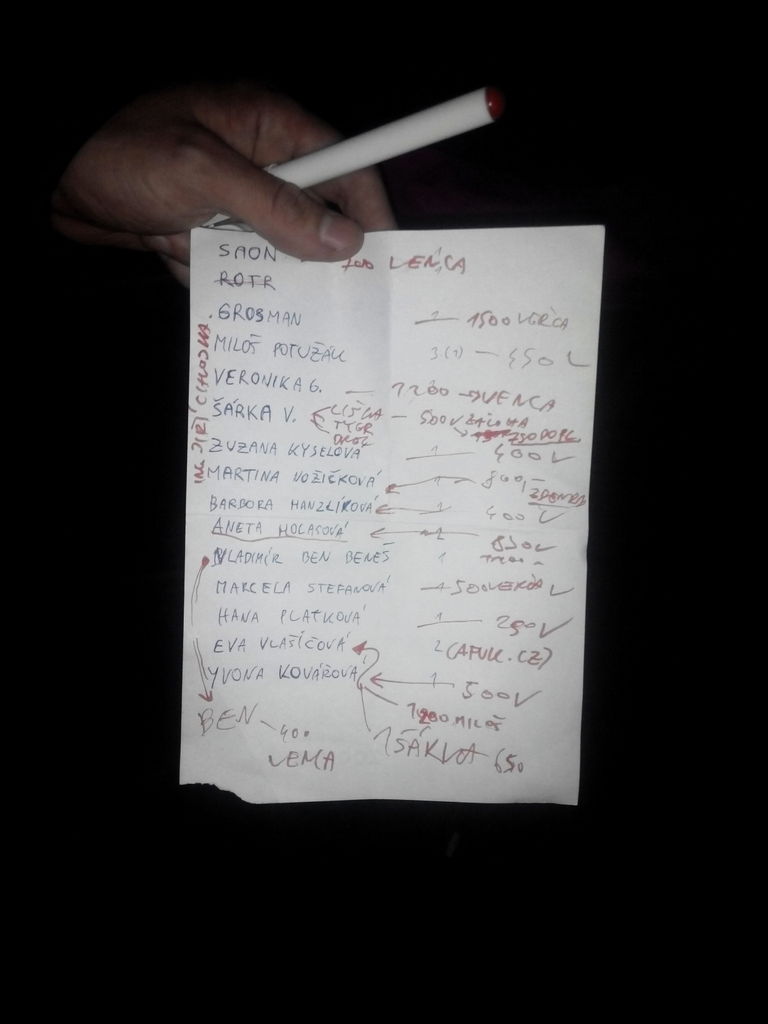 SAON 700 VENCA
ROTR
GROSMAN 1 - 1500 VERČA
MILOŠ POTUŽÁK 3(1) - 450 V
VERONIKA G. - 1200 → VENCA
ŠÁRKA V. LIŠKA - 500V ZÁLOHA
TYGR 250 DOPL
ZUZANA KYSELOVÁ 1 400 V
MARTINA NOŽIČKOVÁ 1 800,- ZDENKA
BARBORA HANZLÍKOVÁ 1 400 V
ANETA HOLASOVÁ 850 V
VLADIMÍR BEN BENEŠ 1
MARCELA STEFANOVÁ 500 VERČA V
HANA PLATKOVÁ 1 250 V
EVA VLAŠIČOVÁ 2 (APUK.CZ)
YVONA KOVÁŘOVÁ 1 500 V
BEN - 400 1200 MILOŠ
VENCA 1 ŠÁRKA 650
ING. JIŘÍ